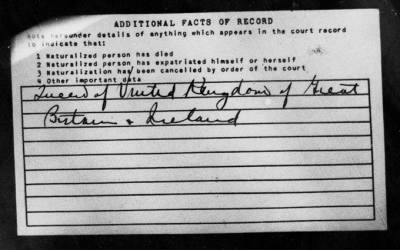 ADDITIONAL FACTS OF RECORD
Note hereunder details of anything which appears in the court record
to indicate that:
1 Naturalized person has died
2 Naturalized person has expatriated himself or herself
3 Naturalization has been cancelled by order of the court
4 Other important data
Queen of United Kingdom of Great
Britain & Ireland